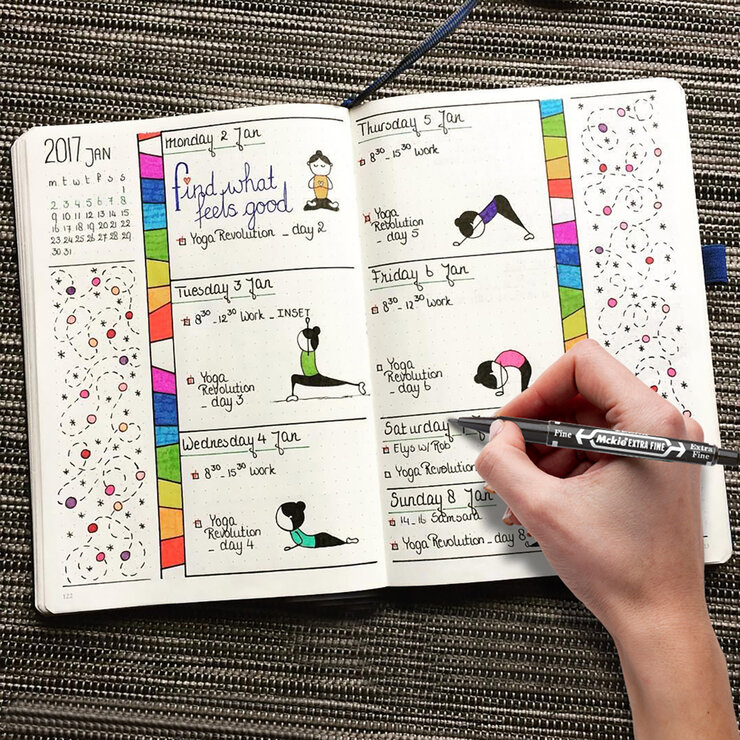 2017 JAN
m t w t f s s
1
2 3 4 5 6 7 8
9 10 11 12 13 14 15
16 17 18 19 20 21 22
23 24 25 26 27 28 29
30 31
monday 2 Jan
find what
feels good
Yoga Revolution _ day 2
Tuesday 3 Jan
8³⁰ - 12³⁰ Work _ INSET
Yoga
Revolution
_ day 3
Wednesday 4 Jan
8³⁰ - 15³⁰ Work
Yoga
Revolution
_ day 4
122
Thursday 5 Jan
8³⁰ - 15³⁰ Work
Yoga
Revolution
_ day 5
Friday 6 Jan
8³⁰ - 12³⁰ Work
Yoga
Revolution
_ day 6
Saturday
Elys w/ Rob
Yoga Revolution
Sunday 8 Jan
14 - 16 Samsara
Yoga Revolution _ day 8
Fine Mckio EXTRA FINE Extra
Fine